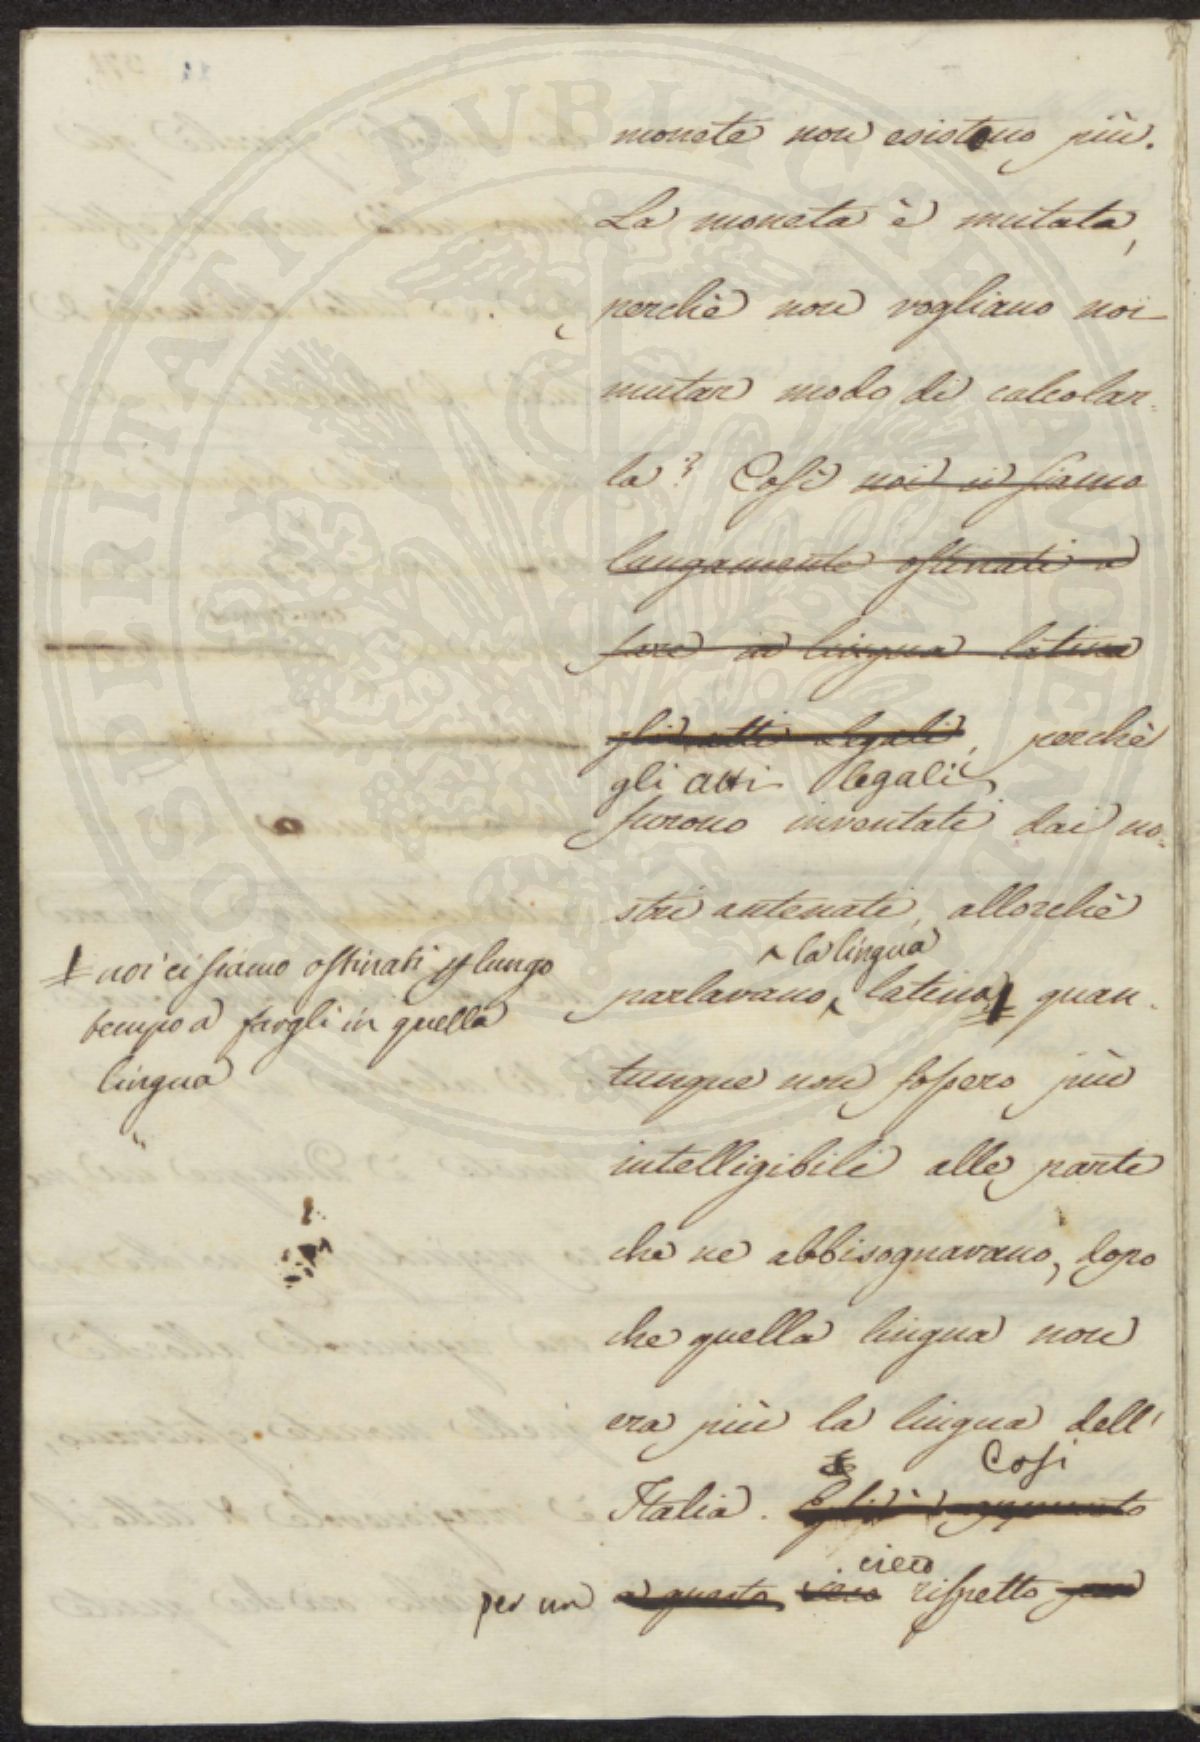 monete non esistono più.
La moneta è mutata,
perchè non vogliano noi
mutar modo di calcolar-
la? Così noi ci siamo
lungamente ostinati a
fare in lingua latina
gli atti legali, perchè
gli atti legali
furono inventati dai no-
stri antenati, allorchè
^ la lingua
parlavano ^ latina quan-
tunque non fossero più
intelligibili alle parti
che ne abbisognavano, dopo
che quella lingua non
era più la lingua dell'
Italia. Egli è appunto
Così
cieco
per un a questo cieco rispetto
noi ci siamo ostinati p lungo
tempo a fargli in quella
lingua
PROSPERITATI PUBLICAE AUGENDAE